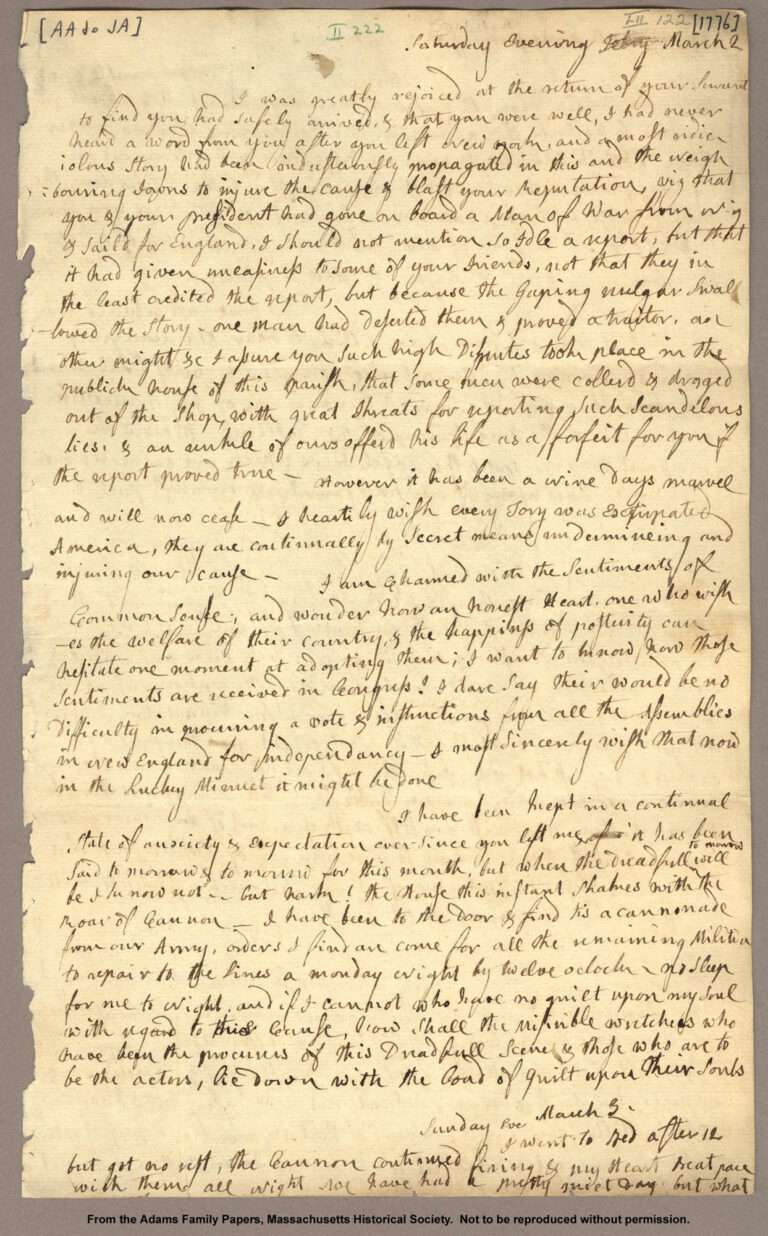 [AA to JA]
II 222
I-II 122 [1776]
Saturday Evening Feb'y March 2
I was greatly rejoiced at the return of your servant
to find you had safely arrived, & that you were well, I had never
heard a word from you after you left New York, and a most ridic
iolous Story had been industerously propagated in this and the neigh
bouring Towns to injure the cause & blast your Reputation, viz that
you & your president had gone on board a Man of War from N-y
& saild for England. I should not mention so Idle a report, but that
it had given uneasiness to some of your Friends, not that they in
the least credited the report, but because the Gaping vulgar Swal
lowed the Story - one man had deserted them & proved a traitor. an
other might &c I assure you such high Disputes took place in the
publick house of this parish, that some men were collerd & dragged
out of the Shop, with great Threats for reporting such Scandelous
lies. & an unkle of ours offerd his life as a forfeit for you if
the report proved true -
However it has been a nine Days marvel
and will now cease - I heartily wish every Tory was Extirpated
America, they are continually by Secret means undermineing and
injuring our cause -
I am charmed with the Sentiments of
Common Sense; and wonder how an honest Heart, one who wish
-es the welfare of their country, & the happiness of posterity can
hesitate one moment at adopting them; I want to know how those
Sentiments are received in Congress? I dare say their would be no
difficulty in procuring a vote & instructions from all the Assemblies
in New England for independancy - I most sincerely wish that now
in the Luckey Minuet it might be done
I have been kept in a continual
State of anxiety & expectation ever since you left me, it has been
said to morrow & to morrow for this month, but when the dreadfull to morrow will
be I know not - but hark! the House this instant shakes with the
Roar of Cannon - I have been to the door & find tis a cannonade
from our Army, orders I find are come for all the remaining Militia
to repair to the Lines a monday night by twelve oclock - no Sleep
for me to Night, and if I cannot who have no guilt upon my Soul
with regard to this Cause, how shall the misirible wretches who
have been the procurers of this Dreadfull Scene & those who are to
be the actors, lie down with the load of Guilt upon their Souls
Sunday Eve March 3.
I went to Bed after 12
but got no rest, the Cannon continued firing & my Heart Beat pace
with them all night we have had a pretty quiet Day but what
From the Adams Family Papers, Massachusetts Historical Society. Not to be reproduced without permission.